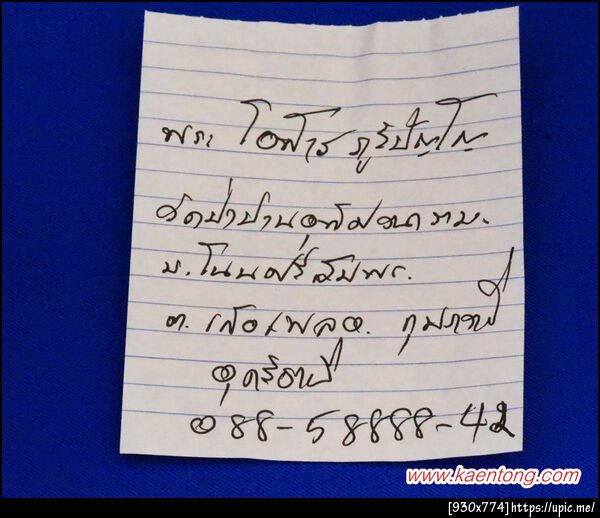 พระ โอฬาร ภูริปัญโญ
วัดป่าบ้าน
บ. โนนศรีสมพร.
ต. เสอเพลอ. กุมภวาปี
อุดรธานี
088-58888-42
www.kaentong.com
[930x774]https://upic.me/